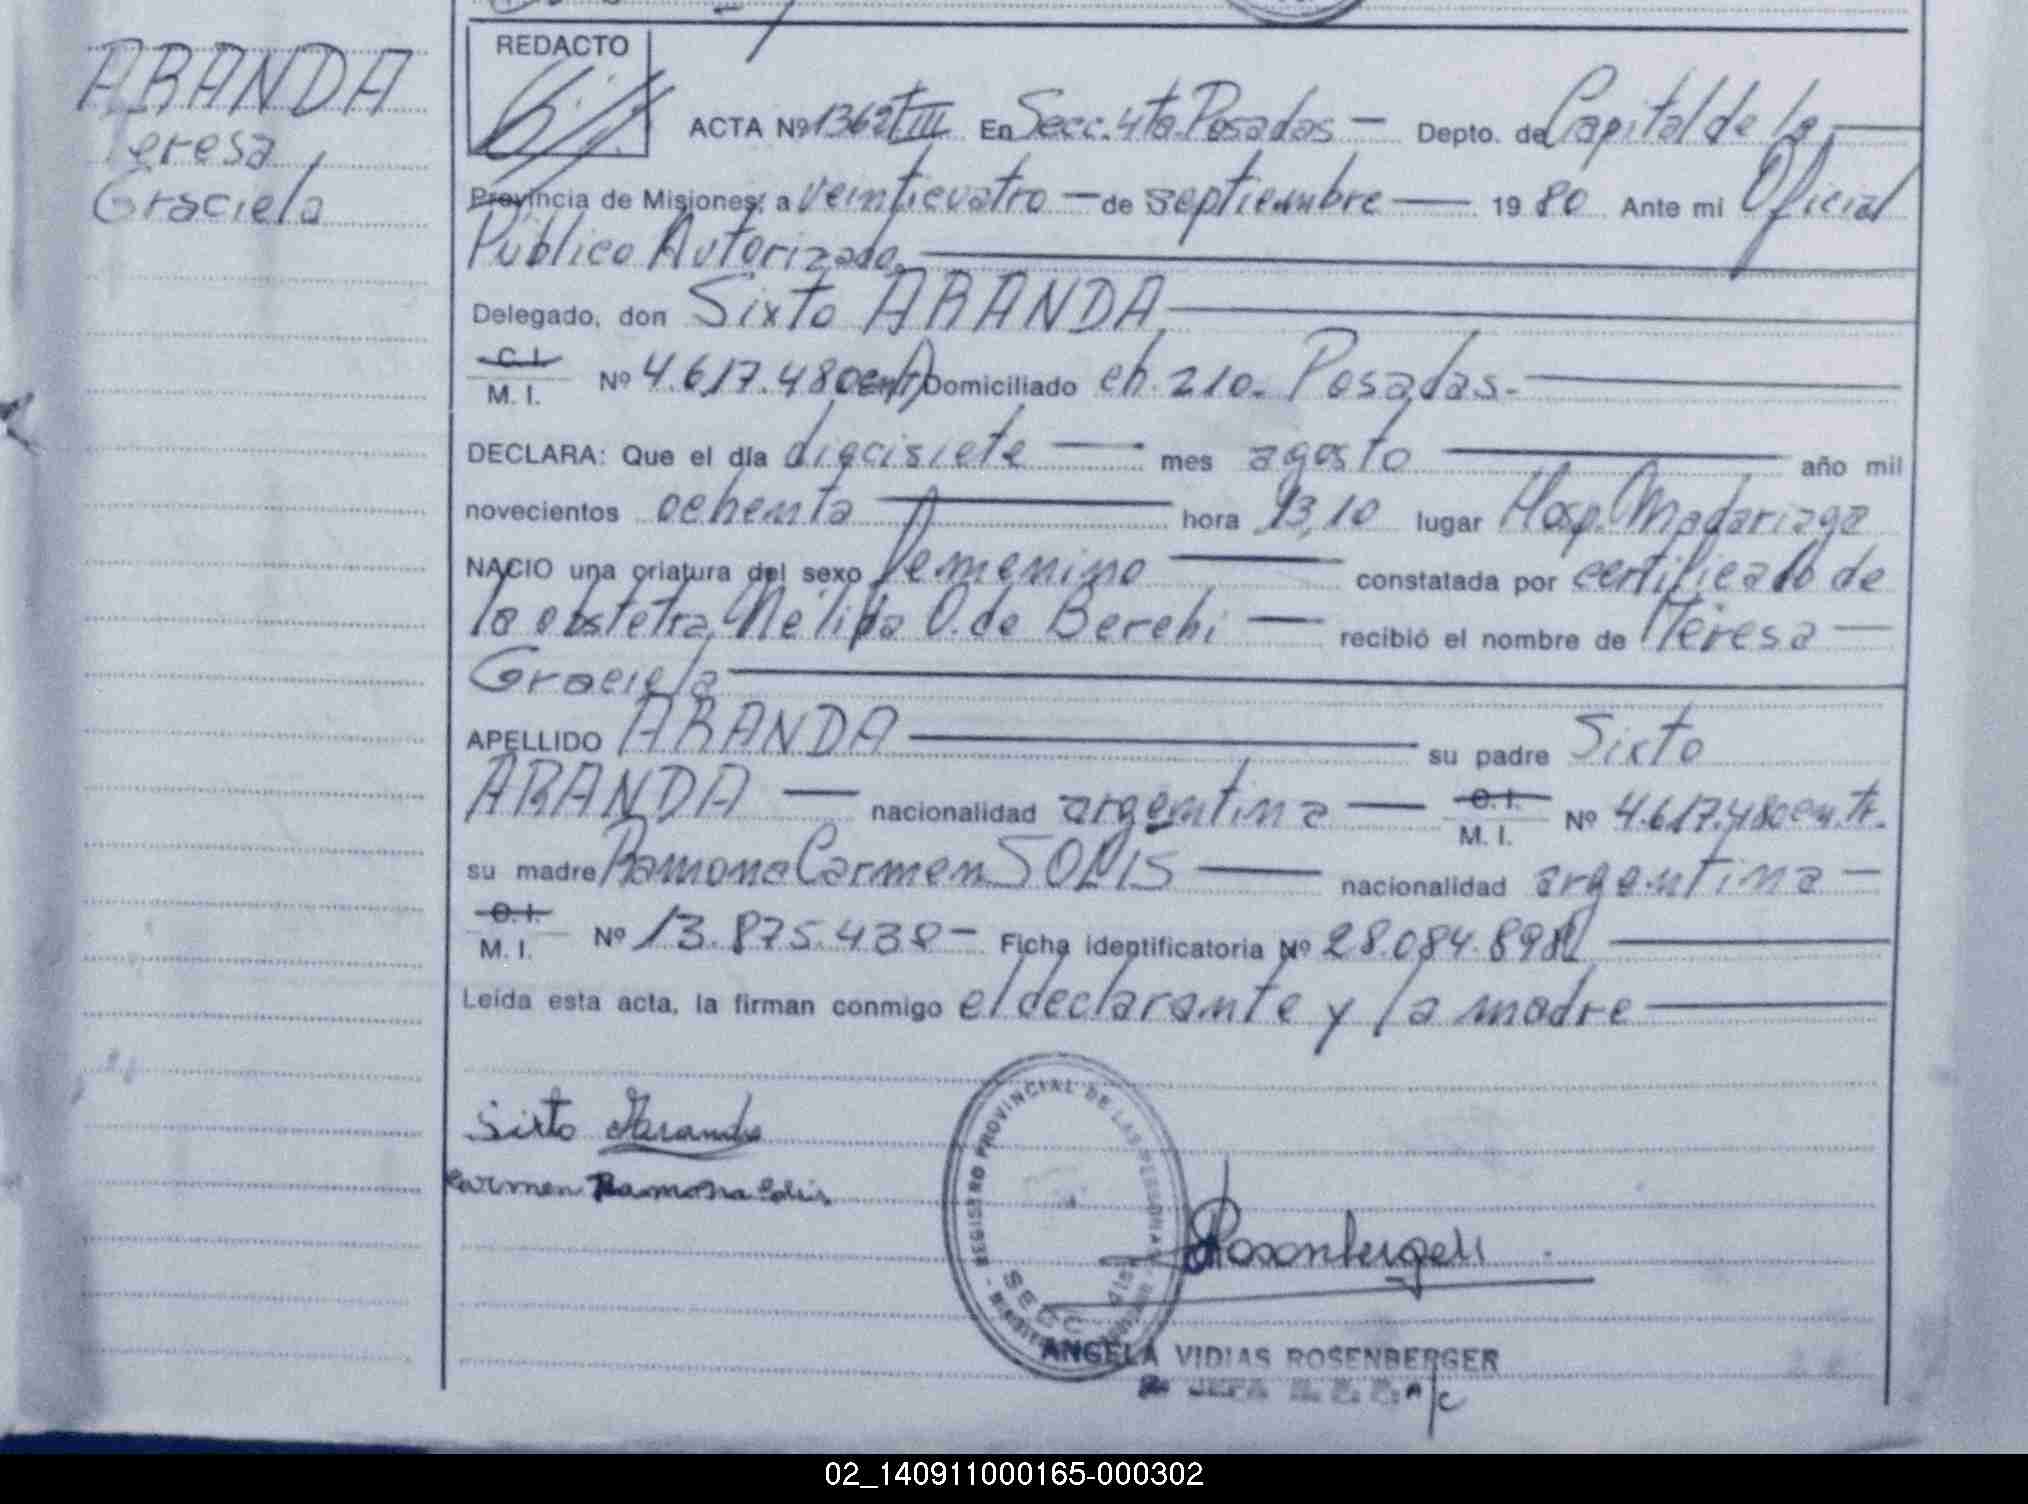 ARANDA
Teresa
Graciela
REDACTO
ACTA Nº 1362 T III En Secc. 4ta. Posadas — Depto. de Capital de la
Provincia de Misiones, a veinticuatro — de septiembre — 1980 Ante mi Oficial
Público Autorizado,
Delegado, don Sixto ARANDA
C. I. / M. I. Nº 4.617.480 Domiciliado ch. 210. Posadas.
DECLARA: Que el día diecisiete — mes agosto — año mil
novecientos ochenta — hora 13,10 lugar Hosp. Madariaga
NACIO una criatura del sexo femenino — constatada por certificado de
la obstetra, Nélida O. de Berchi — recibió el nombre de Teresa —
Graciela
APELLIDO ARANDA — su padre Sixto
ARANDA — nacionalidad argentina — C. I. / M. I. Nº 4.617.480
su madre Ramona Carmen SOLIS — nacionalidad argentina —
C. I. / M. I. Nº 13.875.438 — Ficha identificatoria Nº 28.084.898
Leída esta acta, la firman conmigo el declarante y la madre
Sixto Aranda
Carmen Ramona Solis
REGISTRO PROVINCIAL DE LAS PERSONAS
SECC. 4ta
MISIONES
Rosenberger
ANGELA VIDIAS ROSENBERGER
JEFA A/C
02_140911000165-000302